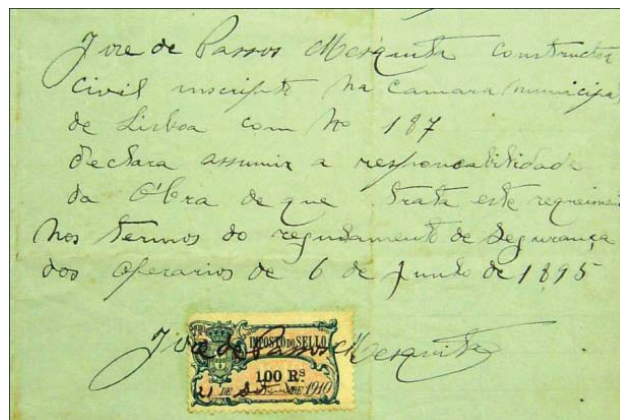 José de Passos Mesquita constructor
civil inscripto na Camara Municipal
de Lisboa com Nº 187
declara assumir a responsabilidade
da Óbra de que trata este requerimen
nos termos do regulamento de Segurança
dos Operarios de 6 de Junho de 1895
José de Passos Mesquita
IMPOSTO DO SELLO
100 Rs
21 DE DE 1910